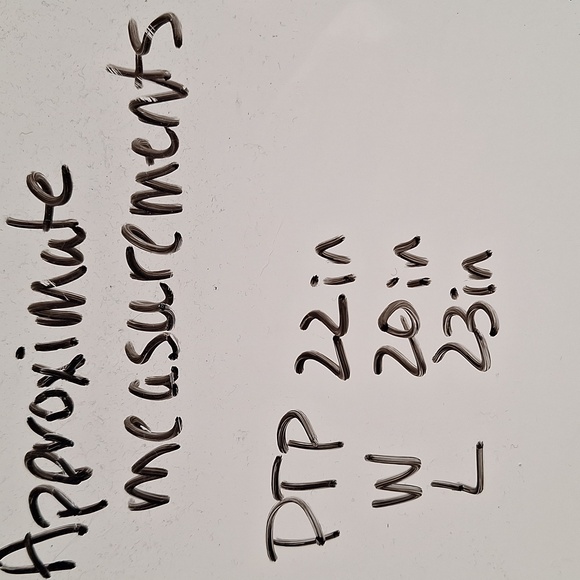 Approximate
measurements
PTP 22in
W 20in
L 23in